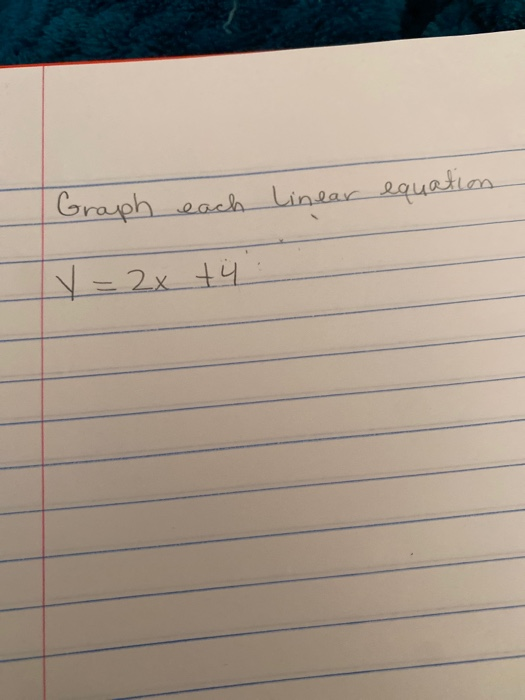 Graph each linear equation
y = 2x + 4